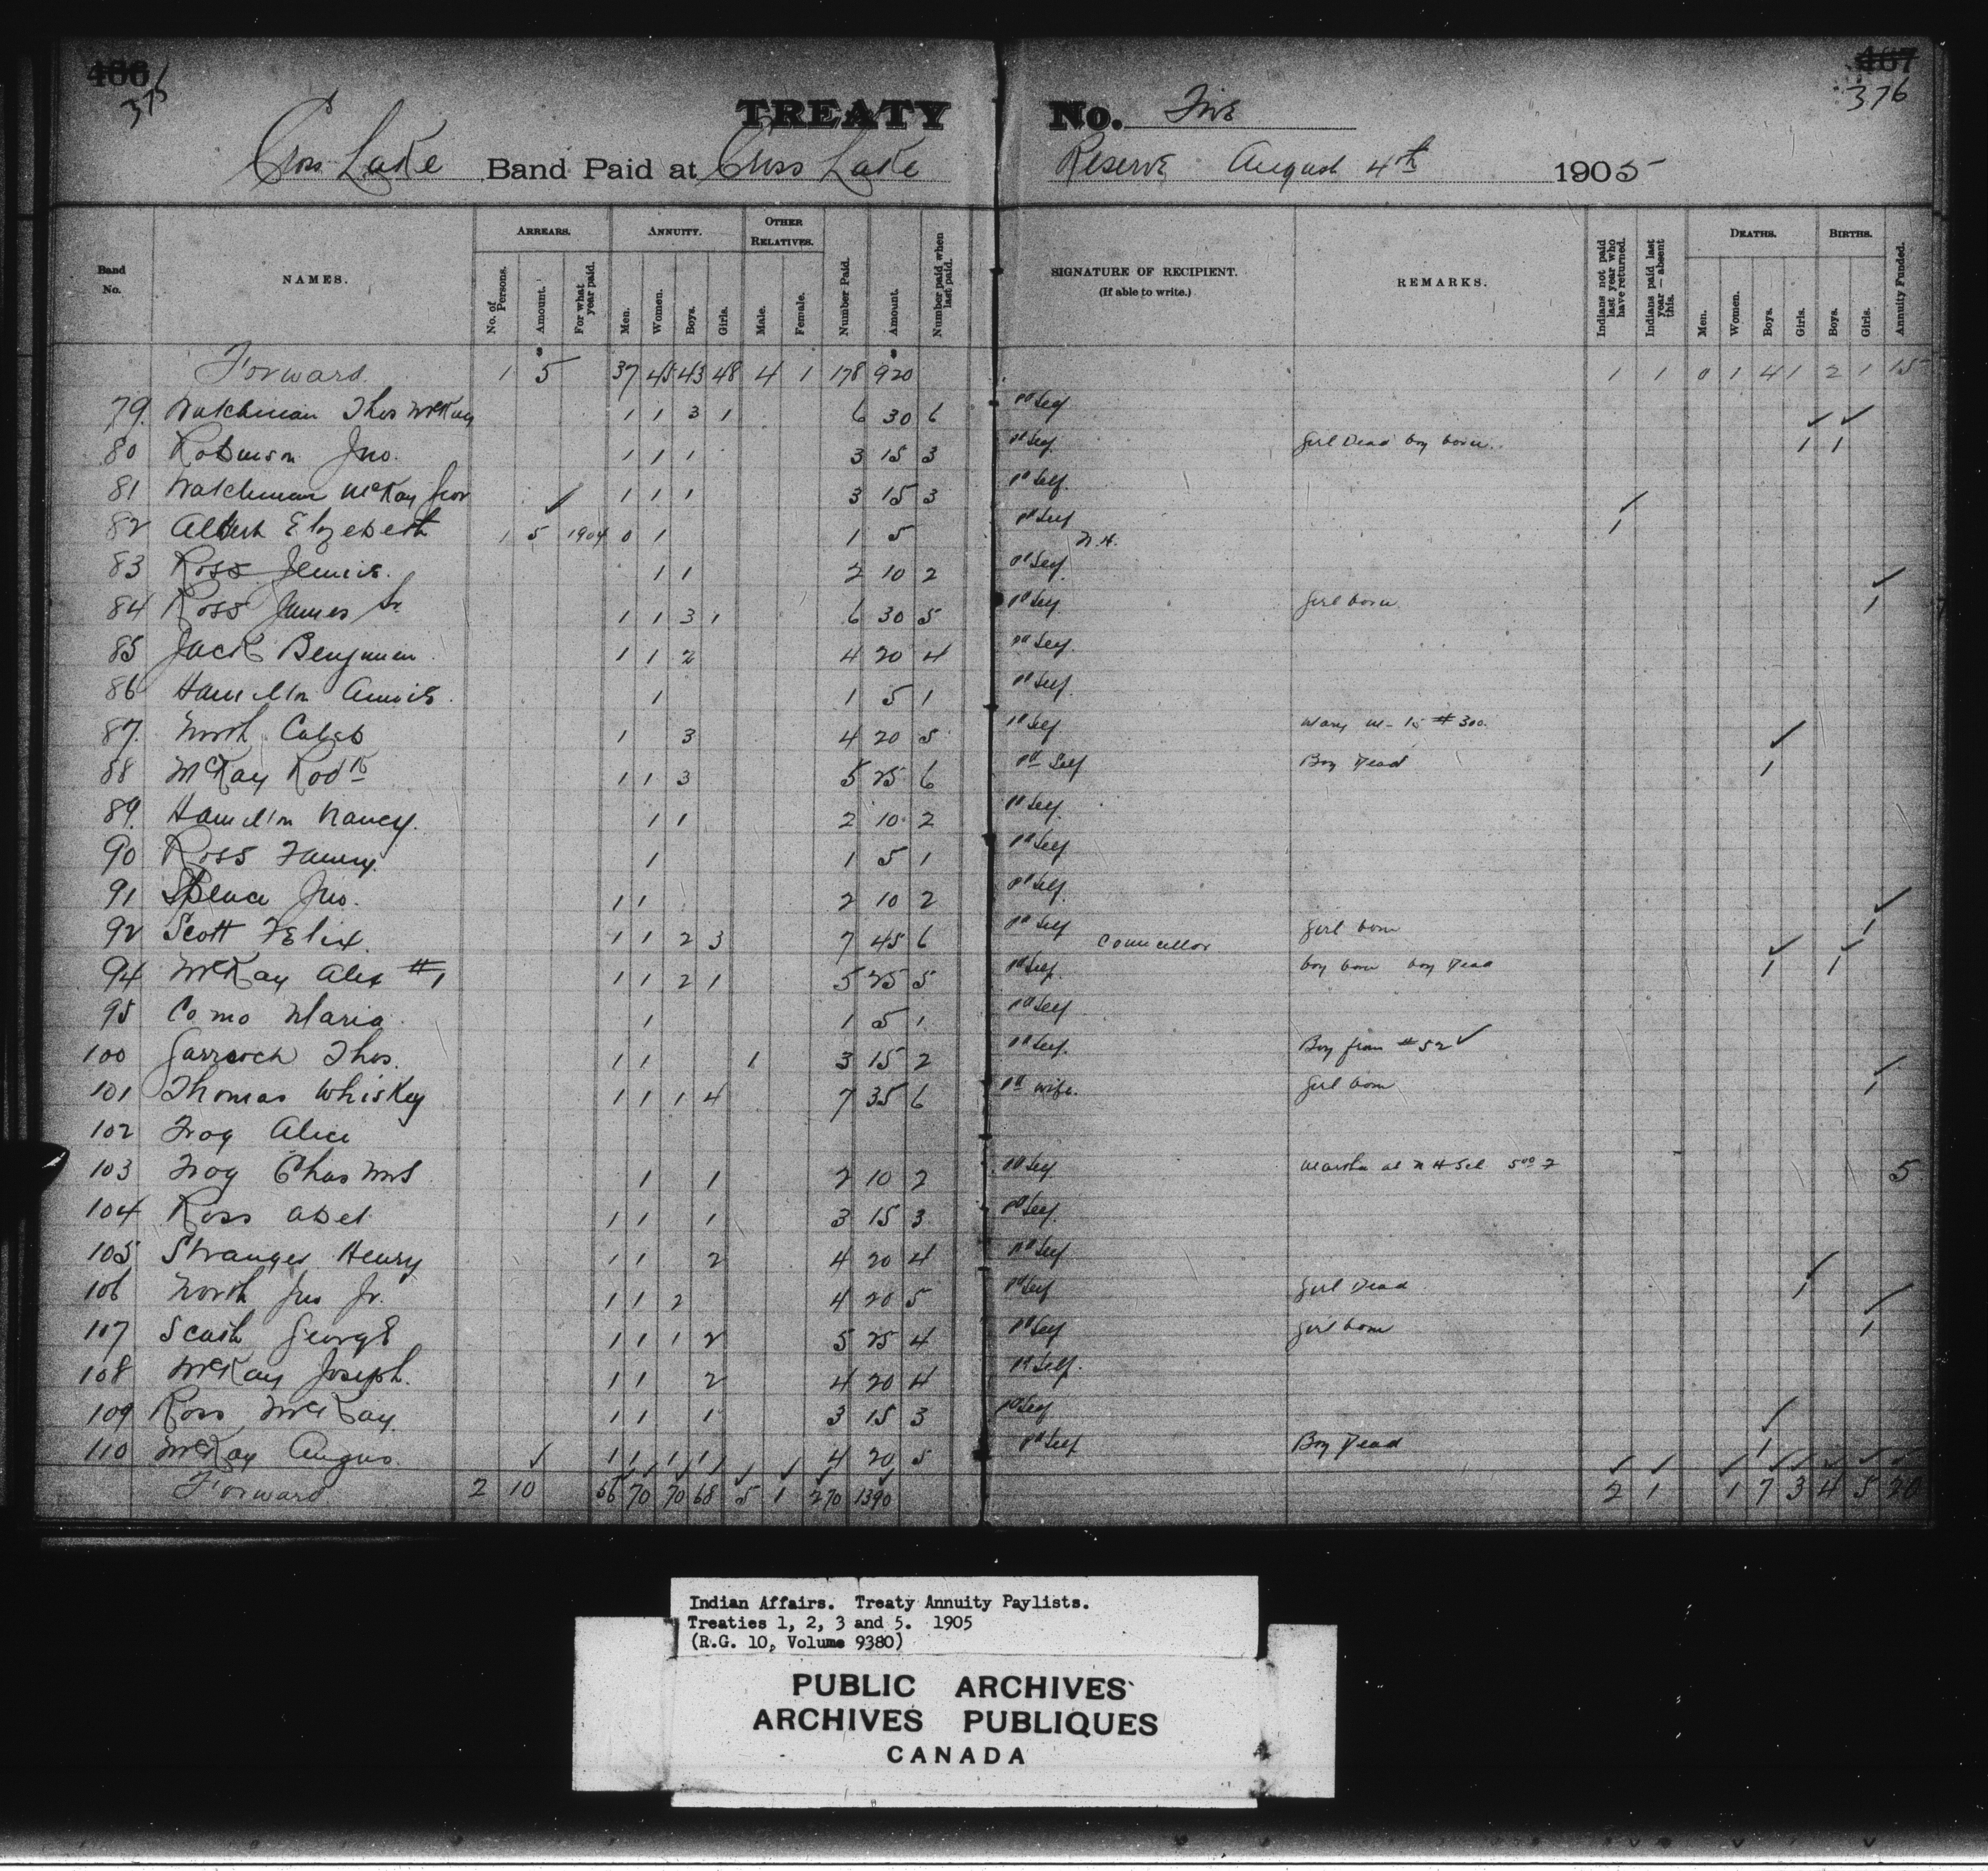 466 467
375 376
TREATY No. Five
Cross Lake Band Paid at Cross Lake Reserve August 4th 1905
Band No. NAMES. ARREARS. No. of Persons. Amount. For what year paid. ANNUITY. Men. Women. Boys. Girls. OTHER RELATIVES. Male. Female. Number Paid. Amount. Number paid when last paid. SIGNATURE OF RECIPIENT. (If able to write.) REMARKS. Indians not paid last year who have returned. Indians paid last year — absent this. DEATHS. Men. Women. Boys. Girls. BIRTHS. Boys. Girls. Annuity Funded.
Forward 1 5 37 45 43 48 4 1 178 920 1 1 0 1 4 1 2 1 15
79 Watchman Thos McKay 1 1 3 1 6 30 6 pd Self
80 Robinson Jno. 1 1 1 3 15 3 pd Self Girl Dead boy born. 1 1
81 Watchman McKay Jnor 1 1 1 3 15 3 pd Self.
82 Albert Elzebeth 1 5 1904 0 1 1 5 pd Self N.H. 1
83 Ross Jennie. 1 1 2 10 2 pd Self
84 Ross James Sr 1 1 3 1 6 30 5 pd Self Girl born 1
85 Jack Benjamin 1 1 2 4 20 4 pd Self.
86 Hamilton Annie. 1 1 5 1 pd Self.
87 North Caleb 1 3 4 20 5 pd Self Mary m- to #300.
88 McKay Rodk 1 1 3 5 25 6 pd Self Boy Dead 1
89 Hamilton Nancy. 1 1 2 10 2 pd Self
90 Ross Fanny. 1 1 5 1 pd Self
91 Spence Jno. 1 1 2 10 2 pd Self.
92 Scott Felix. 1 1 2 3 7 45 6 pd Self Councillor Girl born 1
94 McKay Alex #1 1 1 2 1 5 25 5 pd Self. boy born boy Dead 1 1
95 Como Maria 1 1 5 1 pd Self
100 Garrioch Thos. 1 1 1 3 15 2 pd Self. Boy from #52
101 Thomas Whiskey 1 1 1 4 7 35 6 pd wife. Girl born 1
102 Frog Alice
103 Frog Chas Mrs 1 1 2 10 2 pd Self Martha at N H Scl 5
104 Ross Abel 1 1 1 3 15 3 pd Self.
105 Stranger Henry 1 1 2 4 20 4 pd Self
106 North Jno Jr. 1 1 2 4 20 5 pd Self Girl Dead 1
107 Scatch George 1 1 1 2 5 25 4 pd Self Girl born 1
108 McKay Joseph. 1 1 2 4 20 4 pd Self.
109 Ross McKay 1 1 1 3 15 3 pd Self
110 McKay Angus. 1 1 1 1 4 20 5 pd Self Boy Dead 1
Forward 2 10 56 70 70 68 5 1 270 1390 2 1 1 7 3 4 5 20
Indian Affairs. Treaty Annuity Paylists.
Treaties 1, 2, 3 and 5. 1905
(R.G. 10, Volume 9380)
PUBLIC ARCHIVES
ARCHIVES PUBLIQUES
CANADA